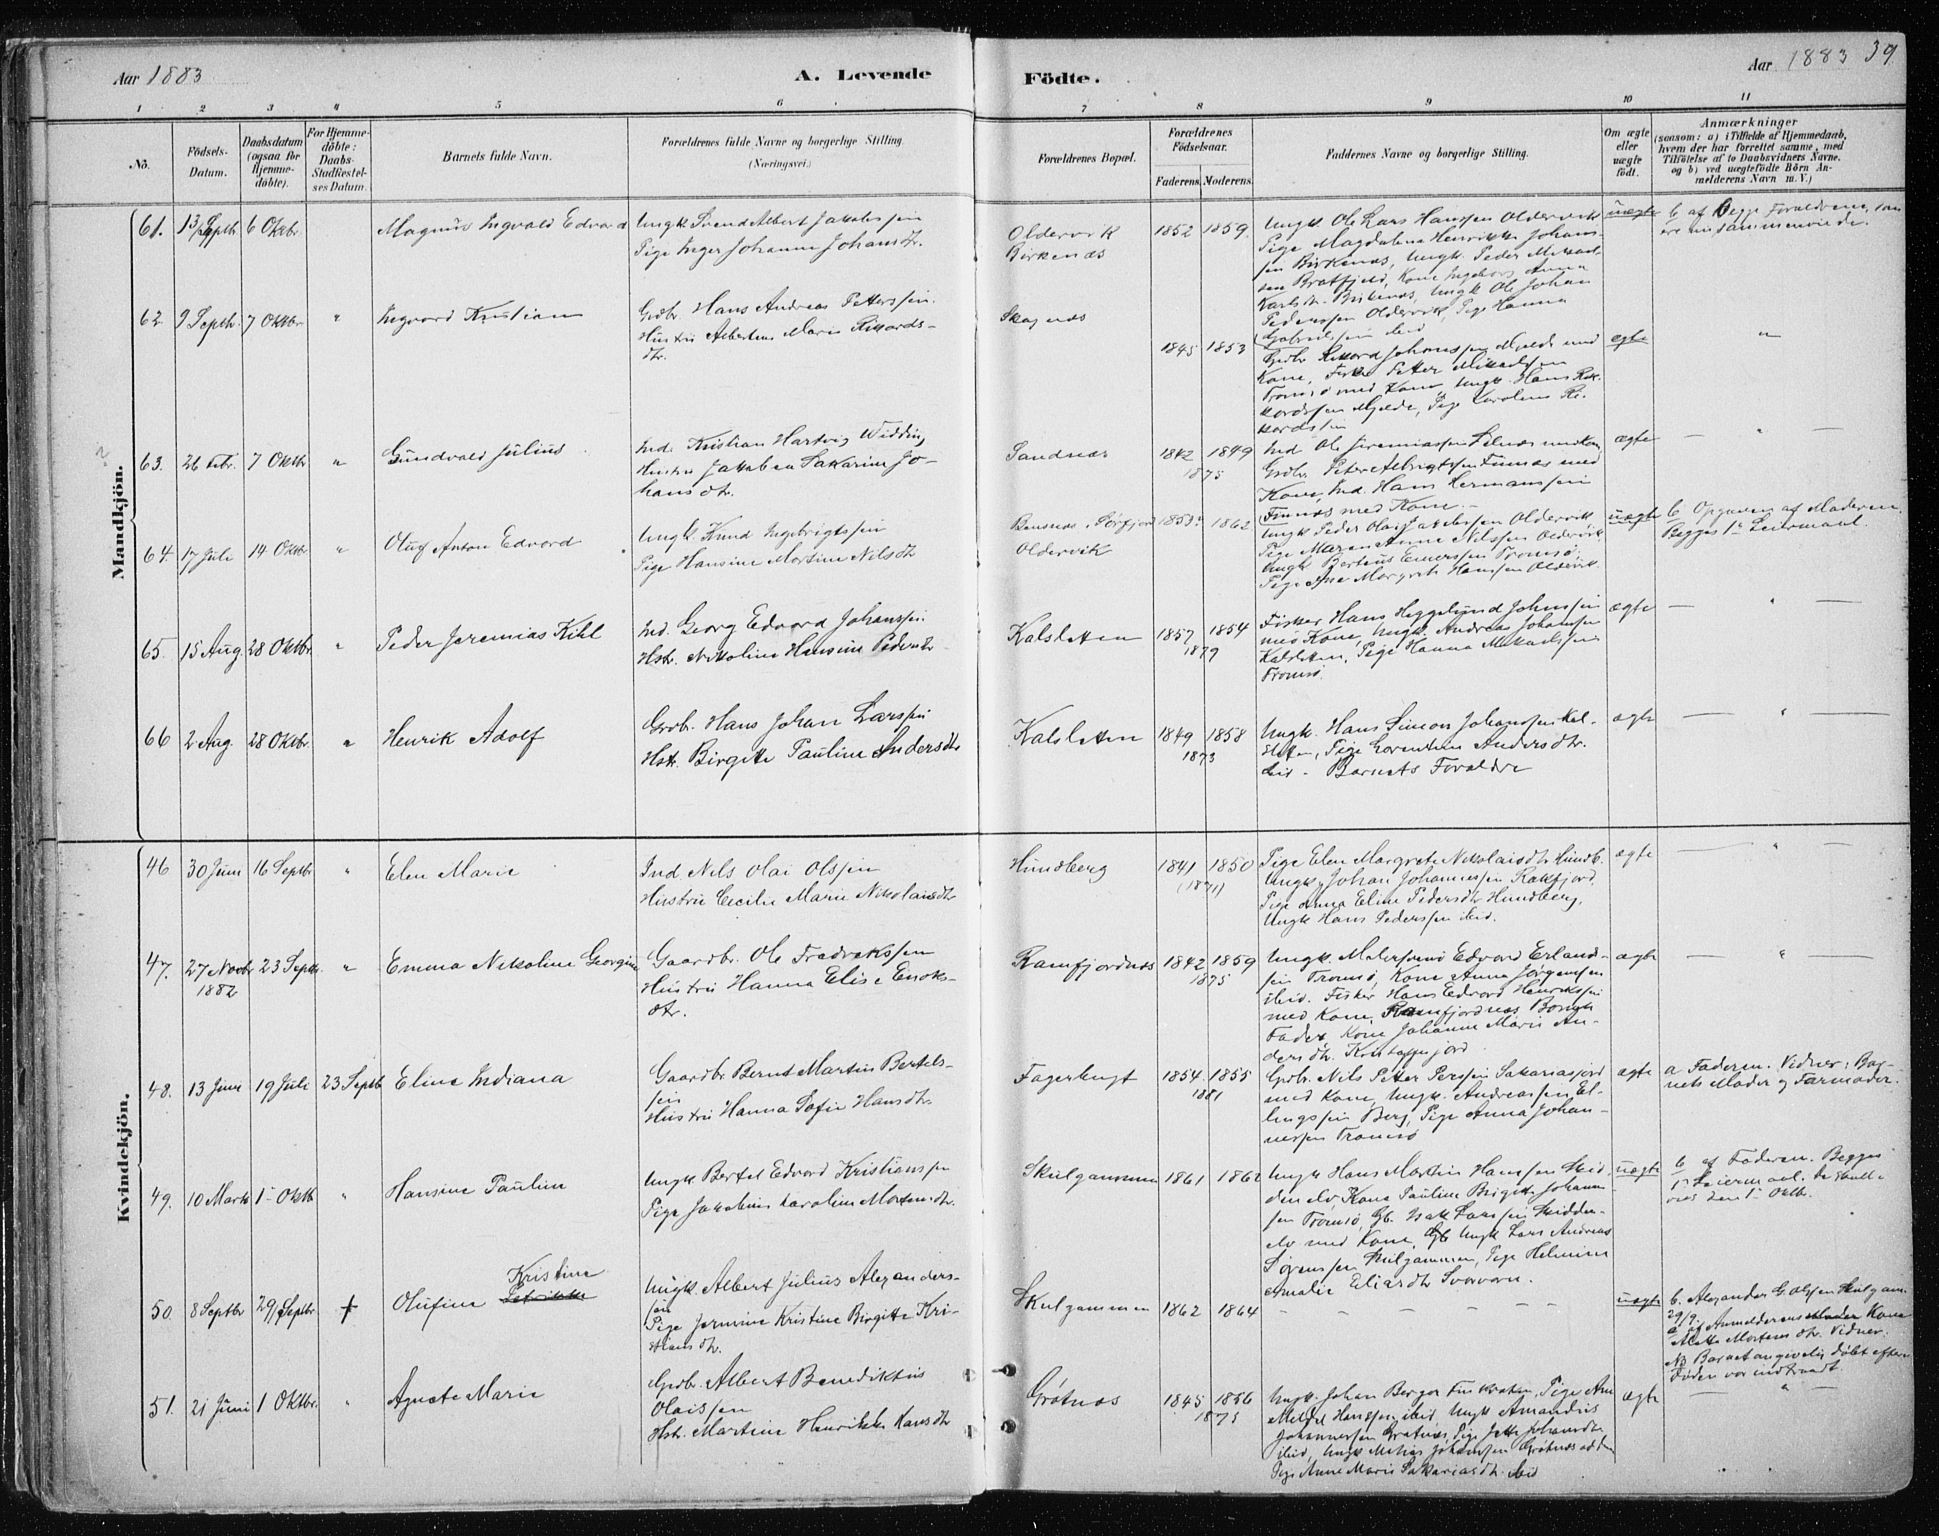 Aar 1883
A. Levende
Födte.
Aar 1883 39
1 2 3 4 5 6 7 8 9 10 11
No.
Födsels-
Datum.
Daabsdatum
(ogsaa for
Hjemme-
döbte).
For Hjemme-
döbte:
Daabs-
Stadfæstel-
ses Datum.
Barnets fulde Navn.
Forældrenes fulde Navne og borgerlige Stilling
(Næringsvei.)
Forældrenes Bopæl.
Forældrenes
Födselsaar.
Faderens. Moderens.
Faddernes Navne og borgerlige Stilling.
Om ægte
eller
uægte
födt.
Anmærkninger
(saasom: a) i Tilfælde af Hjemmedaab,
hvem der har forrettet samme, med
Tilföielse af to Daabsvidners Navne.
og b) ved uægtefödte Börn An-
melderens Navn m. V.)
Mandkjön.
61. 13 Septb. 6 Oktbr Magnus Ingvald Edvard
Ungk. Svend Albert Jakobssen
Pige Inger Johanna Johansdtr.
Oldervik
Birkenæs
1852 1859
Ungk. Ole Lars Hanssen Oldervik
Pige Magdalena Henrikke Johans-
sen Birkenæs, Ungk. Peder
Bratfjeld, Kone Ingeborg Anna
Karlsdtr. Birkenæs, Ungk Ole Johan
Pederssen Oldervik, Pige Hanna
ibid
uægte
b af Begge Forældrene, som
62. 9 Septb. 7 Oktbr " Ingvard Kristian
Grdbr. Hans Andreas Petterssen.
Hustru Albertine Marie Rikards-
dtr.
Skognæs
1845 1853
Grdbr Rikard Johanssen Mjelde med
Kone, Fisker Petter Mikaelssen
Tromsø med Kone, Ungk. Hans Rik-
kardssen Mjelde, Pige Karoline Ri-
kardssen
ægte "
63. 26 Febr. 7 Oktbr " Gundvald Julius
Ind. Kristian Hartvig Widding
Hustru Jakobea Sakarine Jo-
hansdtr.
Sandnæs
1842 1849
1875
Ind Ole Jeremiassen med Kone
Grdbr. Peter Albrigtssen Finnæs med
Kone, Ind. Hans Hermanssen
Finnæs med Kone -
ægte — " —
64. 17 Juli 14 Oktbr " Oluf Anton Edvard
Ungk. Knud Ingebrigtssen
Pige Hansine Martine Nilsdtr
Bensnæs i Sørfjord
Oldervik
1853 1862
Ungk Peder Olai Jakobssen Oldervik
Pige Maren Anna Nilssen Oldervik
Ungk Berteus Tromsø.
Pige Ane Margrete Hanssen Oldervik.
uægte
b Opgaven af Moderen
Begges 1ste Leiermaal.
65. 15 Aug. 28 Oktbr. " Peder Jeremias Kihl
Ind. Georg Edvard Johanssen
Hstr. Nikoline Hansine Pedersdtr
Kalsletten
1857 1854
1879
Fisker Hans Heggelund Johnssen
med Kone, Ungk. Andreas Johanssen
Kalsletten, Pige Hanna Mikaelssen
Tromsø.
ægte — " —
66 2 Aug. 28 Oktbr. " Henrik Adolf
Grdb. Hans Johan Larssen
Hstr. Birgitte Pauline Andersdtr
Kalsletten
1849 1858
1873
Ungk. Hans Simon Johanssen Kal-
sletten, Pige Lorentine Andersdtr.
ibid - Barnets Forældre
ægte — " —
Kvindekjön.
46 30 Juni 16 Septbr " Elen Marie
Ind Nels Olai Olssen
Hustru Cecilie Marie Nikolaisdtr
Hundberg
1841 1850
(1871)
Pige Elen Margrete Nikolaisdtr Hundb.
Ungk. Johan Johannessen Kalfjord.
Pige Anna Eline Pedersdtr Hundberg,
Ungk Hans Pederssen ibid.
ægte — " —
47. 27 Novbr 23 Septb. " Emma Nikoline Georgine
1882
Gaardbr. Ole Fredrikssen
Hustru Hanna Elise Enoks-
dtr.
Ramfjordnæs
1842 1859
1875
Ungk Malersvend Edvard Erland-
sen Tromsø, Kone Anna Jørgensen
ibid. Fisker Hans Edvard Henrikssen
med Kone, Ramfjordnæs
Fader, Kone Johanna Marie An-
dersdtr.
ægte — " —
48. 13 Juni 19 Juli 23 Septb Eline Indiana
Gaardbr. Bernt Martin Bertels-
sen
Hustru Hanna Sofie Hansdtr.
Fagerbugt
1854 1855
1881
Grdbr. Nils Petter Perssen Sakariasjord
med Kone, Ungk. Andreassen El-
lingssen Berg, Pige Anna Johan-
nessen Tromsø
ægte
a Faderen. Vidner: Bar-
nets Moder og Farmoder.
49. 10 Marts 1ste Oktb " Hansine Pauline
Ungk Bertel Edvard Kristianssen
Pige Jakobine Karoline Mortensdtr.
Skulgammen
1861 1862
Ungk Hans Martin Hanssen Skid-
denelv, Kone Pauline Birgitte Johann-
sen Tromsø, Gb. Isak Larssen Skidden-
elv med Kone, Ungk Lars Andreas
Sørenssen Skulgammen, Pige Helmine
Amalie Eliasdtr Svarvarn.
uægte
b af Faderen. Begges
1ste Leiermaal. De
vies den 1ste Oktb.
50. 8 Septbr 29/9 Septbr. + Olufine Petrikke Kristine
Ungk. Albert Julius Alexanders-
sen
Pige Jermine Kristine Birgitte Kri-
stiansdtr.
Skulgammen
1862 1864
- - - - - -
uægte
b. Alexander G. Olssen Skulgam.
29/9.
a af Anmelderens Moder Kone
Aletta Mortensdtr. Vidner.
NB Barnet angivelig døbt efter
Døden var indtraadt.
51. 21 Juni 1 Oktbr. " Agnete Marie
Grdbr. Albert Benediktius
Olaissen
Hstr. Martine Henrikke Hansdtr
Grøtnæs
1845 1856
1875
Ungk. Johan Berger Finkroken, Pige An
Hanssen ibid, Ungk Amandus
Johannessen Grøtnæs, Pige Jette Johansdtr
ibid, Ungk Mathis Johanssen Grøtnæs
Pige Anne Marie Sakariasdtr. ibid
ægte — " —